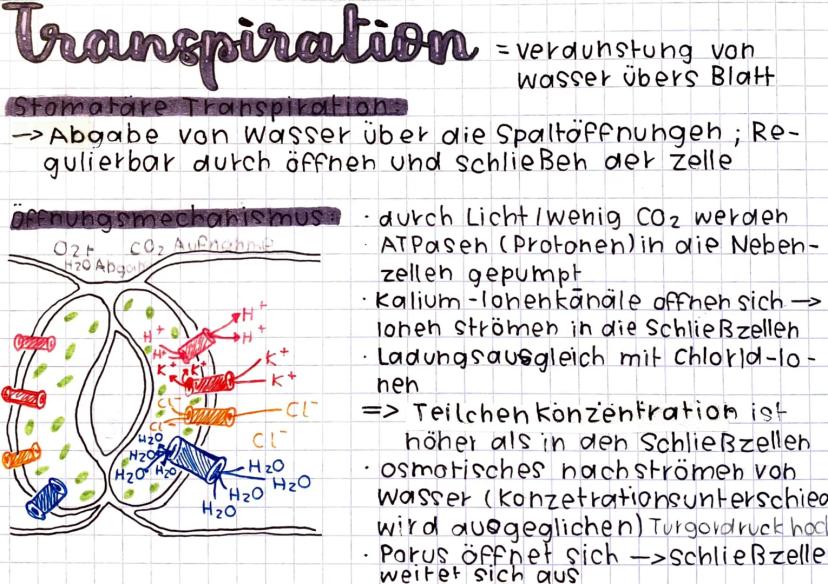 Transpiration = verdunstung von
wasser übers Blatt
Stomatäre Transpiration:
→ Abgabe von Wasser über die Spaltöffnungen ; Re-
gulierbar durch öffnen und schließen der zelle
Öffnungsmechanismus:
O2 +
H2O Abgabe
CO2 Aufnahme
H+
H+
H+
H+
K+
K+
K+
K+
Cl-
Cl-
Cl-
Cl-
H2O
H2O
H2O
H2O
H2O
H2O
H2O
H2O
· durch Licht / wenig CO2 werden
· ATPasen (Protonen) in die Neben-
zellen gepumpt
· Kalium-Ionenkänäle öffnen sich →
Ionen strömen in die Schließzellen
· Ladungsausgleich mit Chlorid-Io-
nen
=> Teilchenkonzentration ist
höher als in den Schließzellen
· osmotisches nachströmen von
wasser (Konzetrationsunterschied
wird ausgeglichen) Turgordruck hoch
· Porus öffnet sich → schließzelle
weitet sich aus